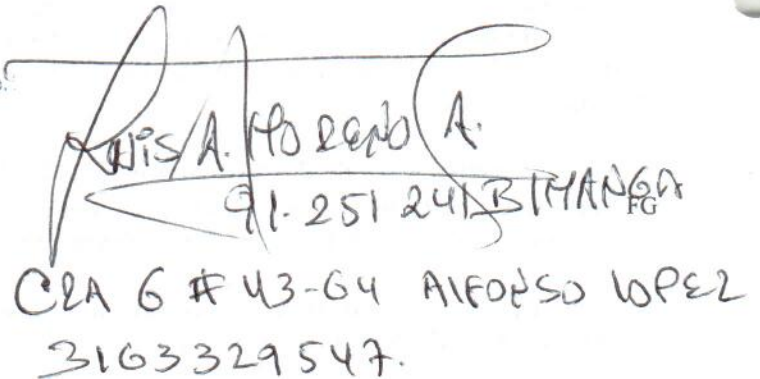 Luis A. MORENO A.
91.251 241 B/MANGA
FG
CRA 6 # 43-64 AlFONSO LOPEZ
3163329547.